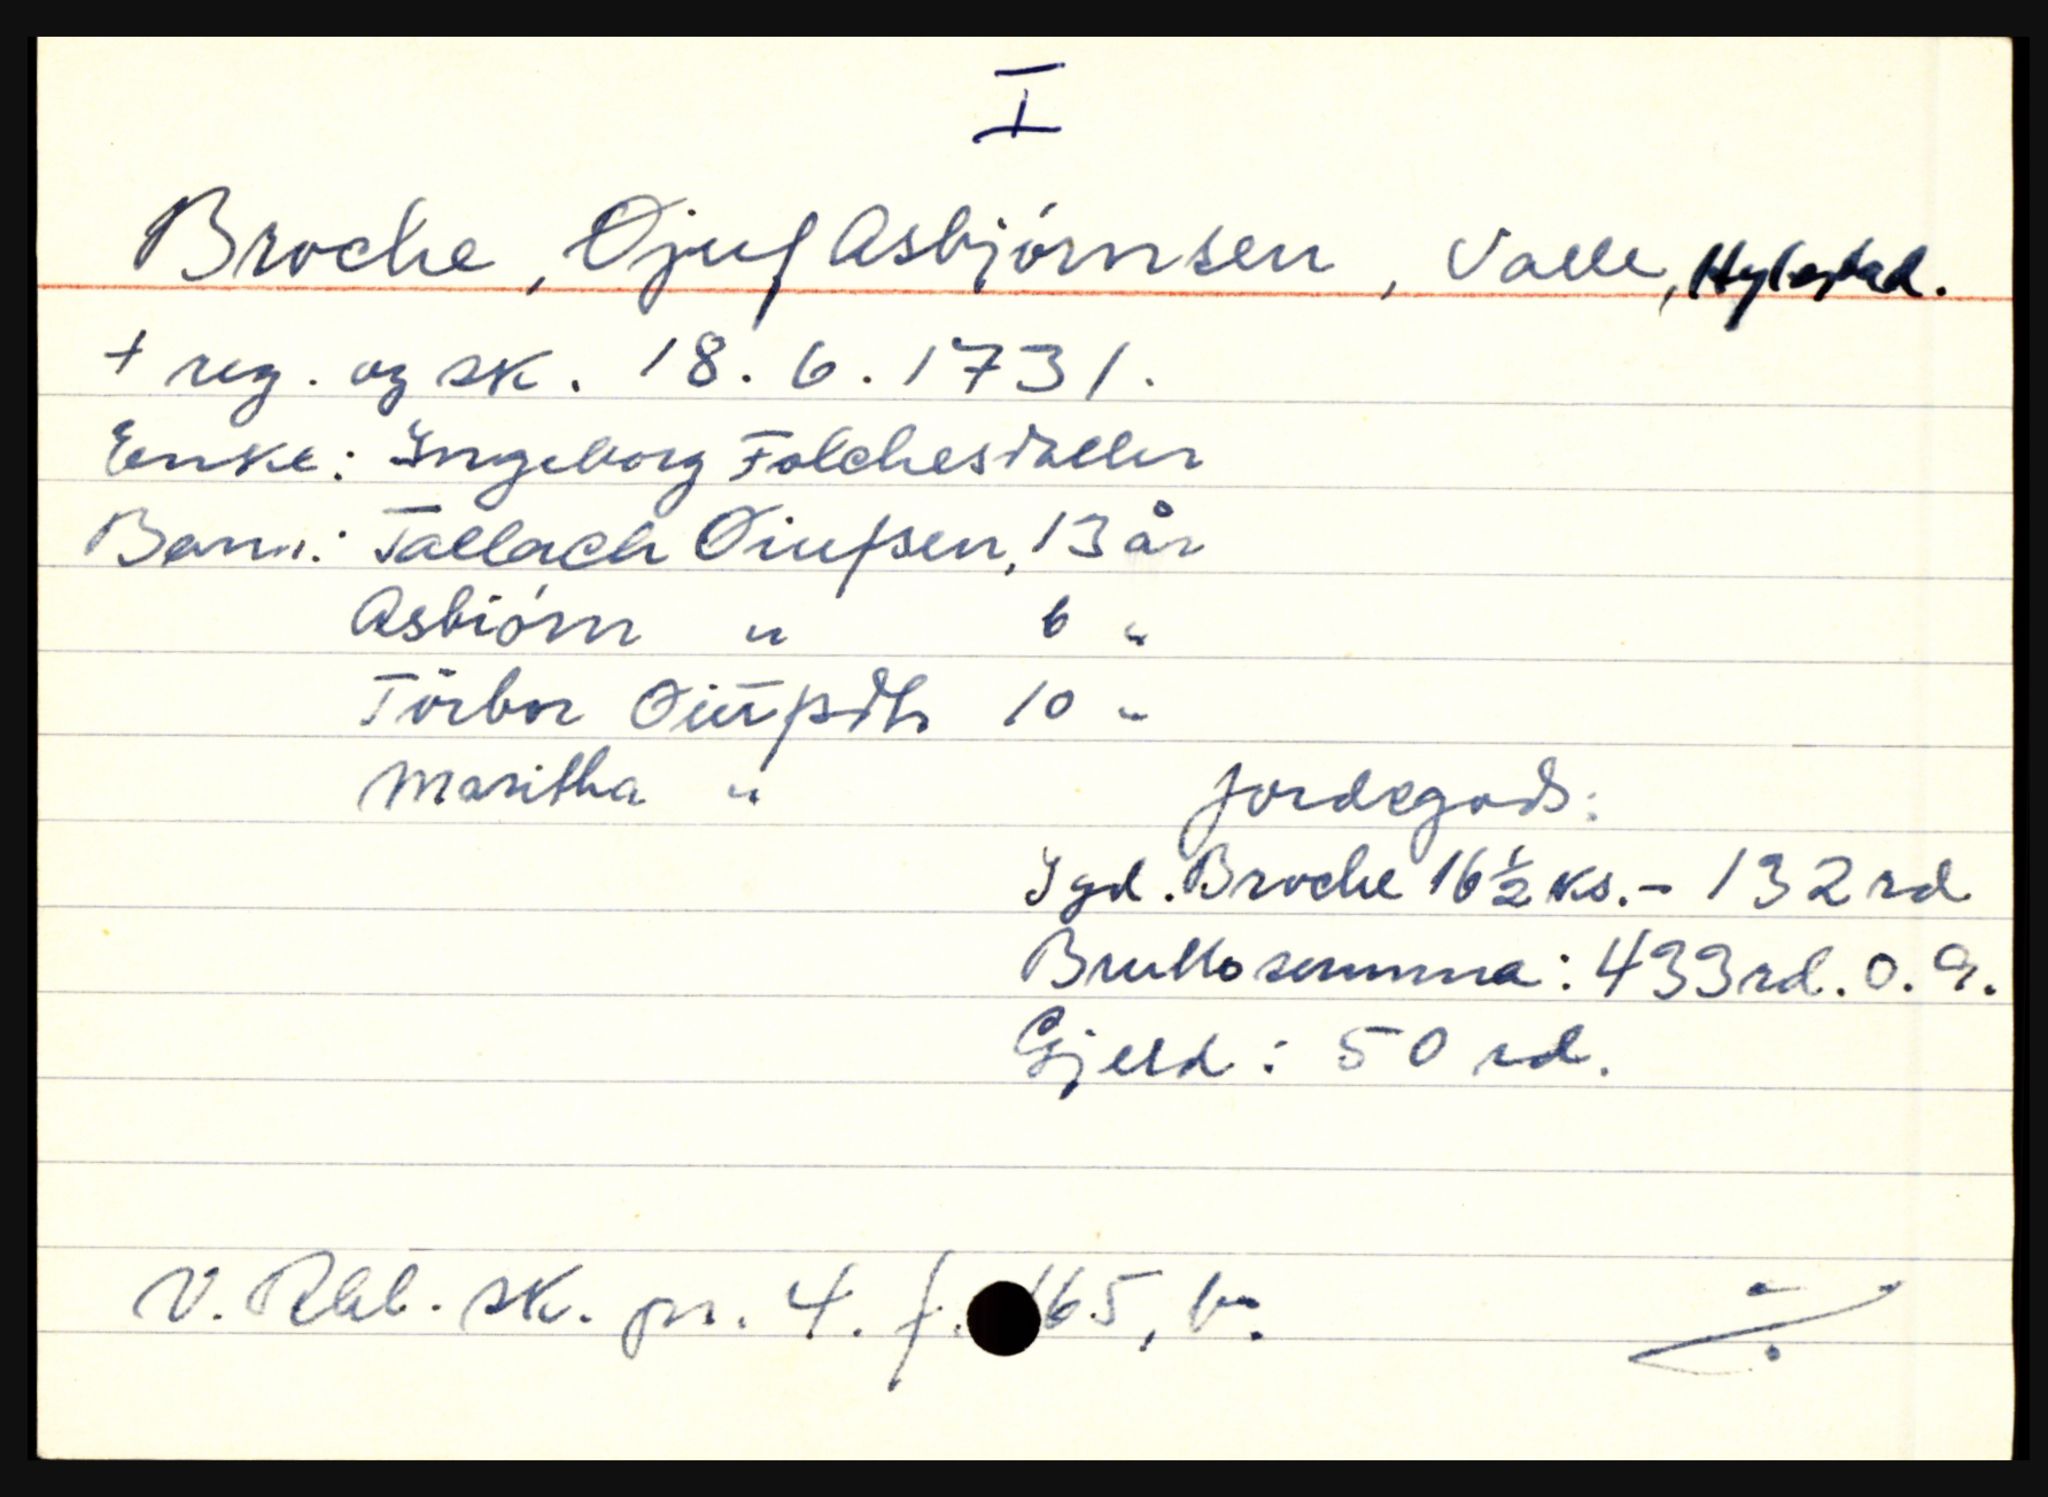 I
Broche, Øjuf Asbjörnsen, Valle, Hylestad.
+ reg. og sk. 18.6.1731.
Enke: Ingeborg Folchesdatter
Barn: Tallach Øiufsen, 13 år
Asbiörn " 6 "
Törbor Øiufsdtr 10 "
Maritha "
Jordegods:
I gd. Broche 16 1/2 ks. - 132 rd
Bruttosumma: 433 rd. o. a.
Gjeld: 50 rd.
V. Rbl. sk. pr. 4. f. 165, b.